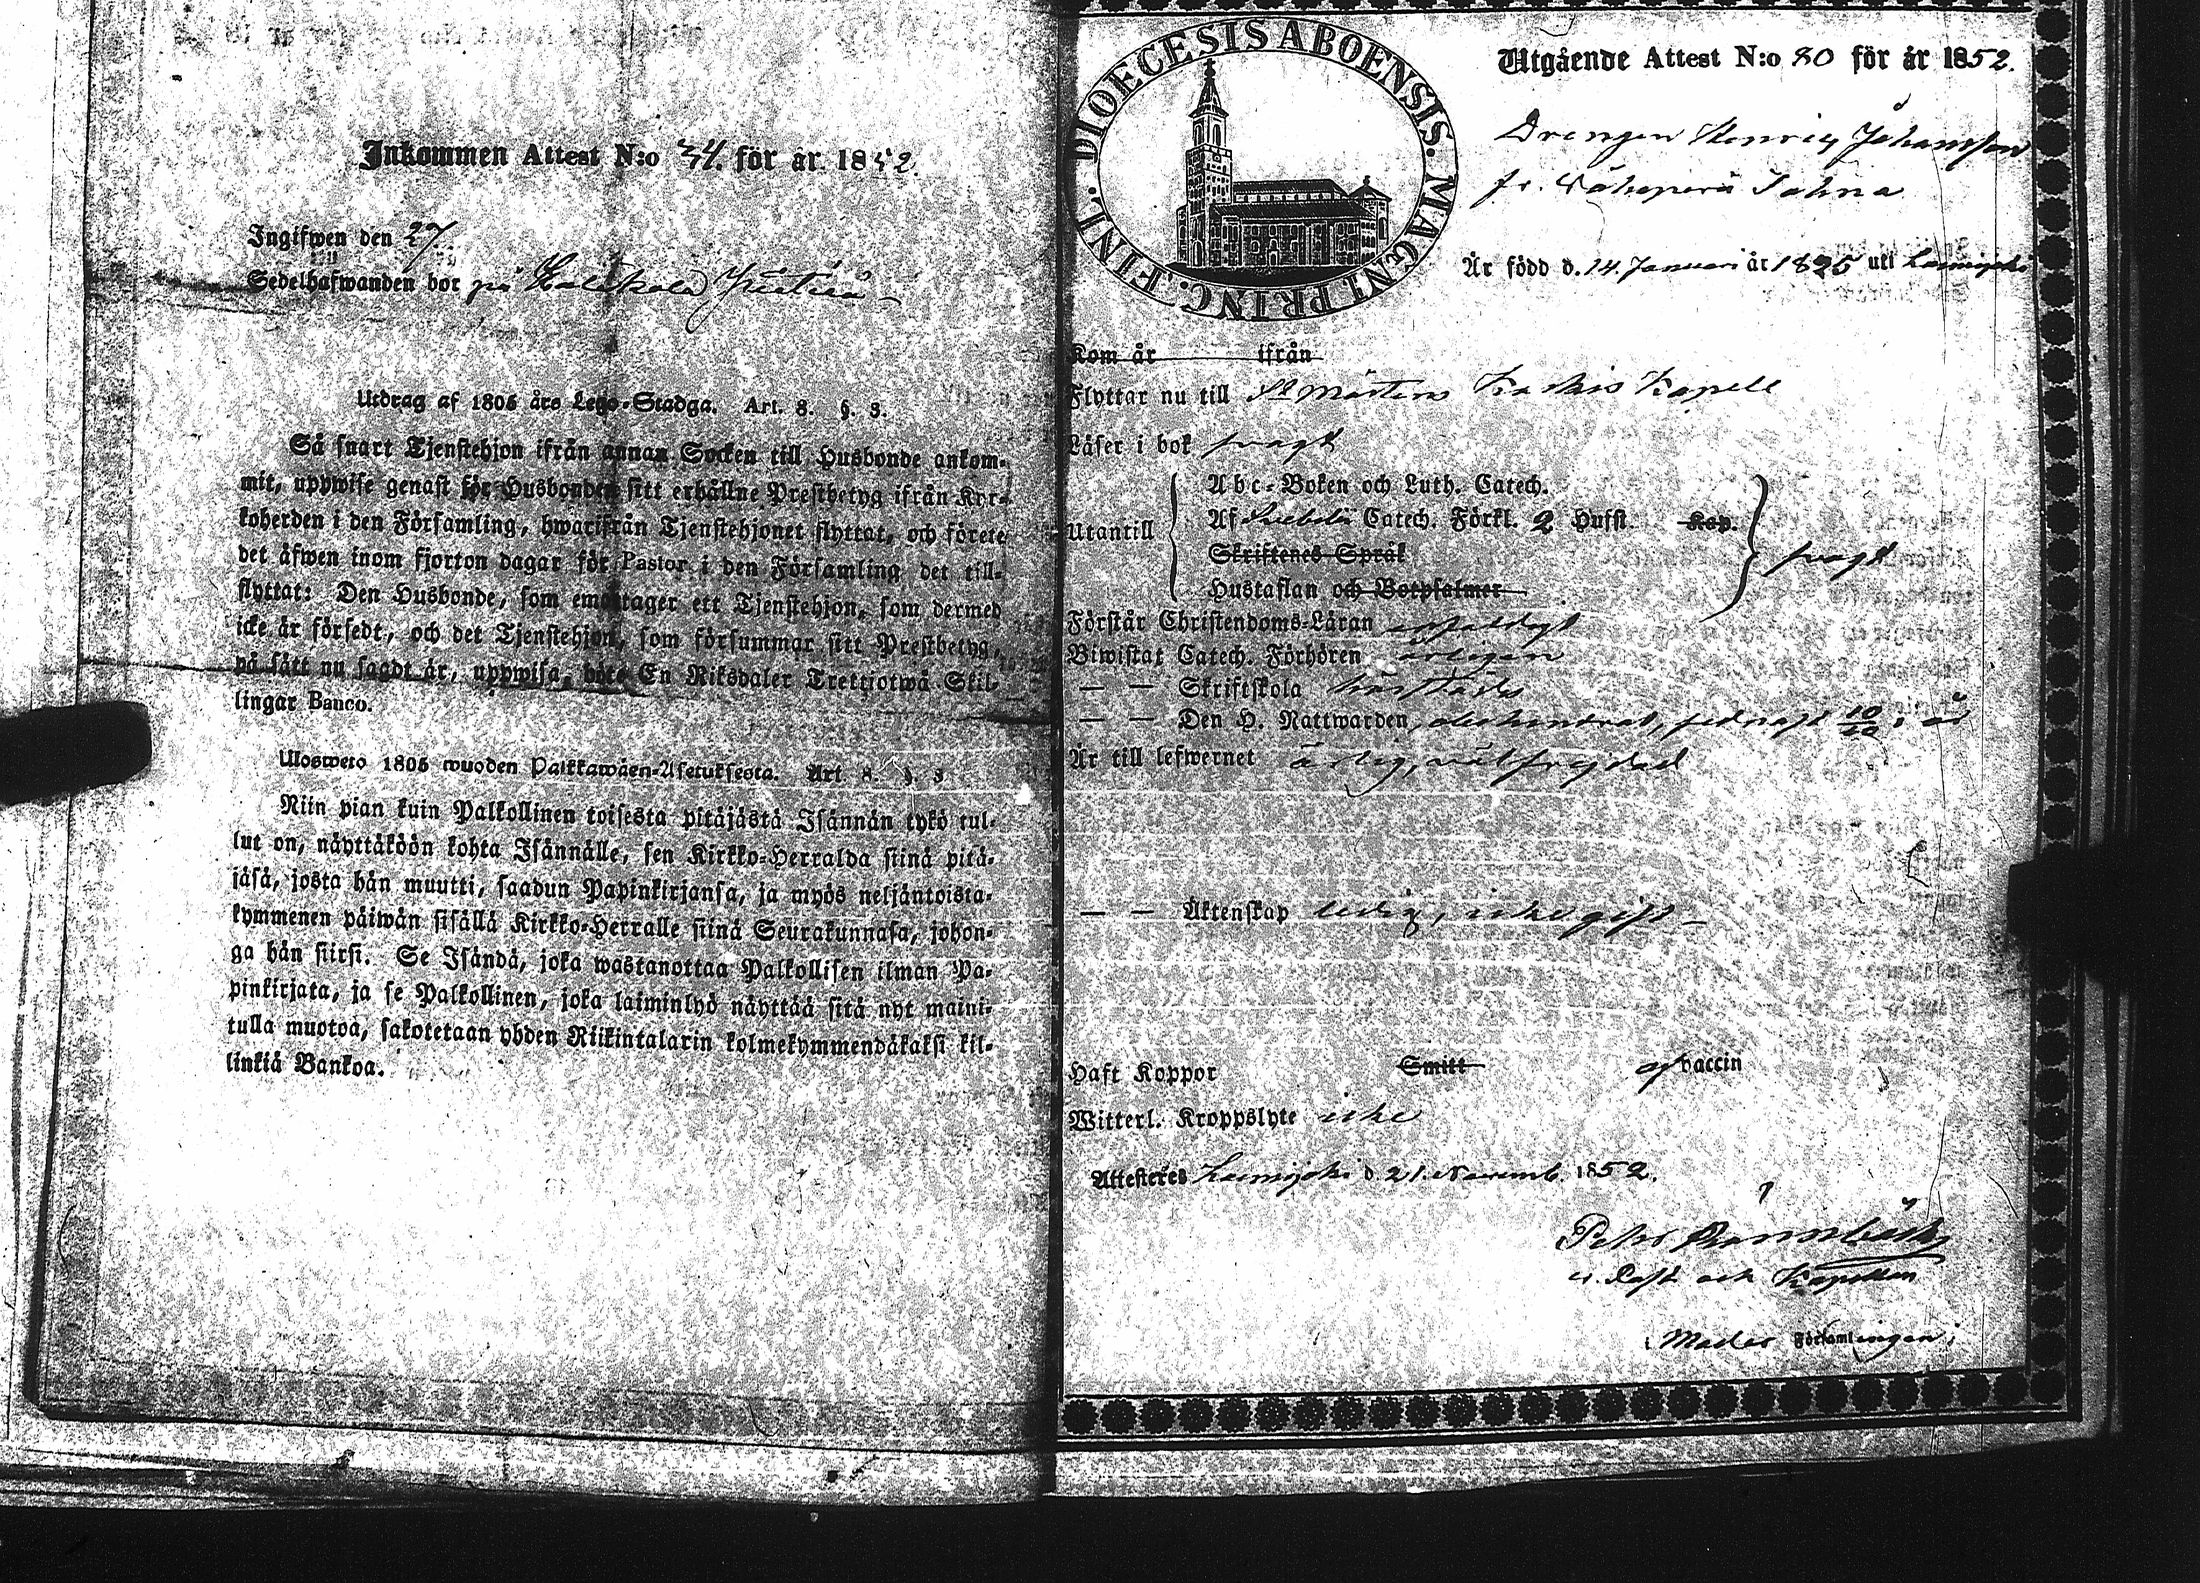 Inkommen Attest N:o 34. för år 1852.
Ingifwen den 27/
Sedelhafwanden bor på
Utdrag af 1805 års Lego-Stadga. Art. 8. §. 3.
Så snart Tjenstehjon ifrån annan Socken till Husbonde ankom-
mit, uppwise genast för Husbonden sitt erhållne Prestbetyg ifrån Kyr-
koherden i den Församling, hwarifrån Tjenstehjonet flyttat, och förete
det äfwen inom fjorton dagar för Pastor i den Församling det till-
flyttat: Den Husbonde, som emottager ett Tjenstehjon, som dermed
icke är försedt, och det Tjenstehjon, som försummar sitt Prestbetyg,
på sätt nu sagdt är, uppwisa, böte En Riksdaler Trettiotwå Skil-
lingar Banco.
Ulosweto 1805 wuoden Palkkawäen-Asetuksesta. Art. 8. §. 3
Niin pian kuin Palkollinen toisesta pitäjästä Isännän tykö tul-
lut on, näyttäköön kohta Isännälle, sen Kirkko-Herralda siinä pitä-
jäsä, josta hän muutti, saadun Papinkirjansa, ja myös neljäntoista-
kymmenen päiwän sisällä Kirkko-Herralle siinä Seurakunnasa, johon-
ga hän siirsi. Se Isändä, joka wastanottaa Palkollisen ilman Pa-
pinkirjata, ja se Palkollinen, joka laiminlyö näyttää sitä nyt maini-
tulla muotoa, sakotetaan yhden Riikintalarin kolmekymmendäkaksi kil-
linkiä Bankoa.
DIOECESIS ABOENSIS. MAGNI PRINC. FINL.
Utgående Attest N:o 80 för år 1852.
Drengen Henric Johansson
fr. Vähäperä Johna
Är född d. 14. Januari år 1825 uti Loimijoki
Kom år ifrån
Flyttar nu till St Mårtens Koskis Kapell
Läser i bok swagt
Utantill
Abc-Boken och Luth. Catech.
Af Swebelii Catech. Förkl. 2 Hufst. Kap.
Skriftenes Språk
Hustaflan och Botpsalmer
swagt
Förstår Christendoms-Läran enfaldigt
Biwistat Catech. Förhören årligen
— — Skriftskola
— — Den H. Nattwarden, sednast 10/10 i år
Är till lefwernet ärlig, wälfrejdad
— — Äktenskap ledig, icke gift —
Haft Koppor Smitt af vaccin
Witterl. Kroppslyte icke
Attesteres Loimijoki d. 21. Novemb. 1852.
v. Past och Kapellan
i Moder Församlingen